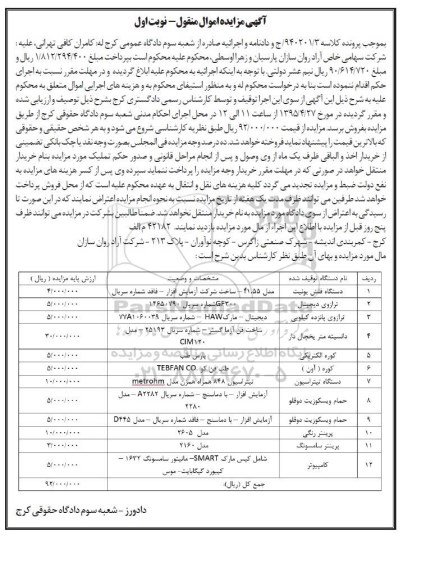 آگهی مزایده اموال منقول – نوبت اول
بموجب پرونده کلاسه ۹۴۰۲۰۱/۳/ج و دادنامه و اجرائیه صادره از شعبه سوم دادگاه عمومی کرج له: کامران کافی تهرانی، علیه:
شرکت سهامی خاص آراد روان سازان پارسیان و زهرا اوسطی، محکوم علیه محکوم است بپرداخت مبلغ ۱/۸۱۲/۲۹۴/۴۰۰ ریال و
مبلغ ۹۰/۶۱۴/۷۲۰ ریال نیم عشر دولتی. با توجه به اینکه اجرائیه به محکوم علیه ابلاغ گردیده و در مهلت مقرر نسبت به اجرای
حکم اقدام ننموده است بنا به درخواست محکوم له و به منظور استیفای محکوم به و هزینه های اجرایی اموال متعلق به محکوم
علیه به شرح ذیل این آگهی از سوی این اجرا توقیف و توسط کارشناس رسمی دادگستری کرج بشرح ذیل توصیف و ارزیابی شده
و مقرر گردیده در مورخ ۱۳۹۵/۴/۲۷ از ساعت ۱۱ الی ۱۲ در محل اجرای احکام مدنی شعبه سوم دادگاه حقوقی کرج از طریق
مزایده بفروش برسد. مزایده از قیمت ۹۲/۰۰۰/۰۰۰ ریال طبق نظریه کارشناسی شروع می شود و به هر شخص حقیقی و حقوقی
که بالاترین قیمت را پیشنهاد نماید فروخته خواهد شد. ده درصد وجه مزایده فی المجلس بصورت وجه نقد یا چک بانکی تضمینی
از خریدار اخذ و الباقی ظرف یک ماه از وی وصول و پس از انجام مراحل قانونی و صدور حکم تملیک مورد مزایده بنام خریدار
منتقل خواهد در صورتی که در مهلت مقرر خریدار وجه مزایده را پرداخت ننماید سپرده وی پس از کسر هزینه های مزایده به
نفع دولت ضبط و مزایده تجدید می گردد کلیه هزینه های نقل و انتقال به عهده محکوم علیه است که از محل فروش پرداخت
خواهد شد طرفین می توانند ظرف مدت یک هفته از تاریخ مزایده نسبت به نحوه انجام مزایده اعتراض نمایند که در این صورت تا
رسیدگی به اعتراض از سوی دادگاه مورد مزایده به نام خریدار منتقل نخواهد شد. ضمنا طالبین شرکت در مزایده می توانند ظرف
پنج روز قبل از مزایده با اطلاع این اجراء از مال مورد مزایده بازدید نمایند. ۴۲۱۸۲ م الف
کرج – کمربندی اندیشه – شهرک صنعتی زاگرس – کوچه نوآوران – پلاک ۲۱۳ – شرکت آراد روان سازان
مال مورد مزایده و بهای آن طبق نظر کارشناس بدین شرح است:
ردیف نام دستگاه توقیف شده مشخصات و وضعیت ارزش پایه مزایده (ریال)
۱ دستگاه فلش پوئینت مدل ۴۱.۵۵ – ساخت شرکت آزمایش افزار – فاقد شماره سریال ۴/۰۰۰/۰۰۰
۲ ترازوی دیجیتال GF۳۰۰ شماره سریال ۱۴۶۵۰۷۹۰ ۵/۰۰۰/۰۰۰
۳ ترازوی پانزده کیلویی دیجیتال – مارک HAW – شماره سریال ۷۷۸۱۰۶۰۰۳۹ ۵/۰۰۰/۰۰۰
۴ دانسیته متر یخچال دار ساخت فن آزما گستر – شماره سریال ۲۵۱۹۳ – مدل CIM۱۲۰ ۳۰/۰۰۰/۰۰۰
۵ کوره الکتریکی پارس طب ۵/۰۰۰/۰۰۰
۶ کوره (آون) طب فن کو TEBFAN CO ۵/۰۰۰/۰۰۰
۷ دستگاه تیتراسیون تیتراسیون ۸۴۸ همراه همزن مدل metrohm ۱۰/۰۰۰/۰۰۰
۸ حمام ویسکوزیت دوقلو آزمایش افزار – با دماسنج – شماره سریال A۲۲۸۲ – مدل ۲۲۸۰ ۵/۰۰۰/۰۰۰
۹ حمام ویسکوزیت دوقلو آزمایش افزار – با دماسنج – فاقد شماره سریال – مدل D۴۴۵ ۵/۰۰۰/۰۰۰
۱۰ پرینتر رنگی مدل ۲۶۰۵ ۱۰/۰۰۰/۰۰۰
۱۱ پرینتر سامسونگ مدل ۲۱۶۰ ۳/۰۰۰/۰۰۰
۱۲ کامپیوتر شامل کیس مارک SMART – مانیتور سامسونگ ۱۶۳۲ – کیبورد گیگابایت – موس ۵/۰۰۰/۰۰۰
جمع کل (ریال): ۹۲/۰۰۰/۰۰۰
دادورز – شعبه سوم دادگاه حقوقی کرج